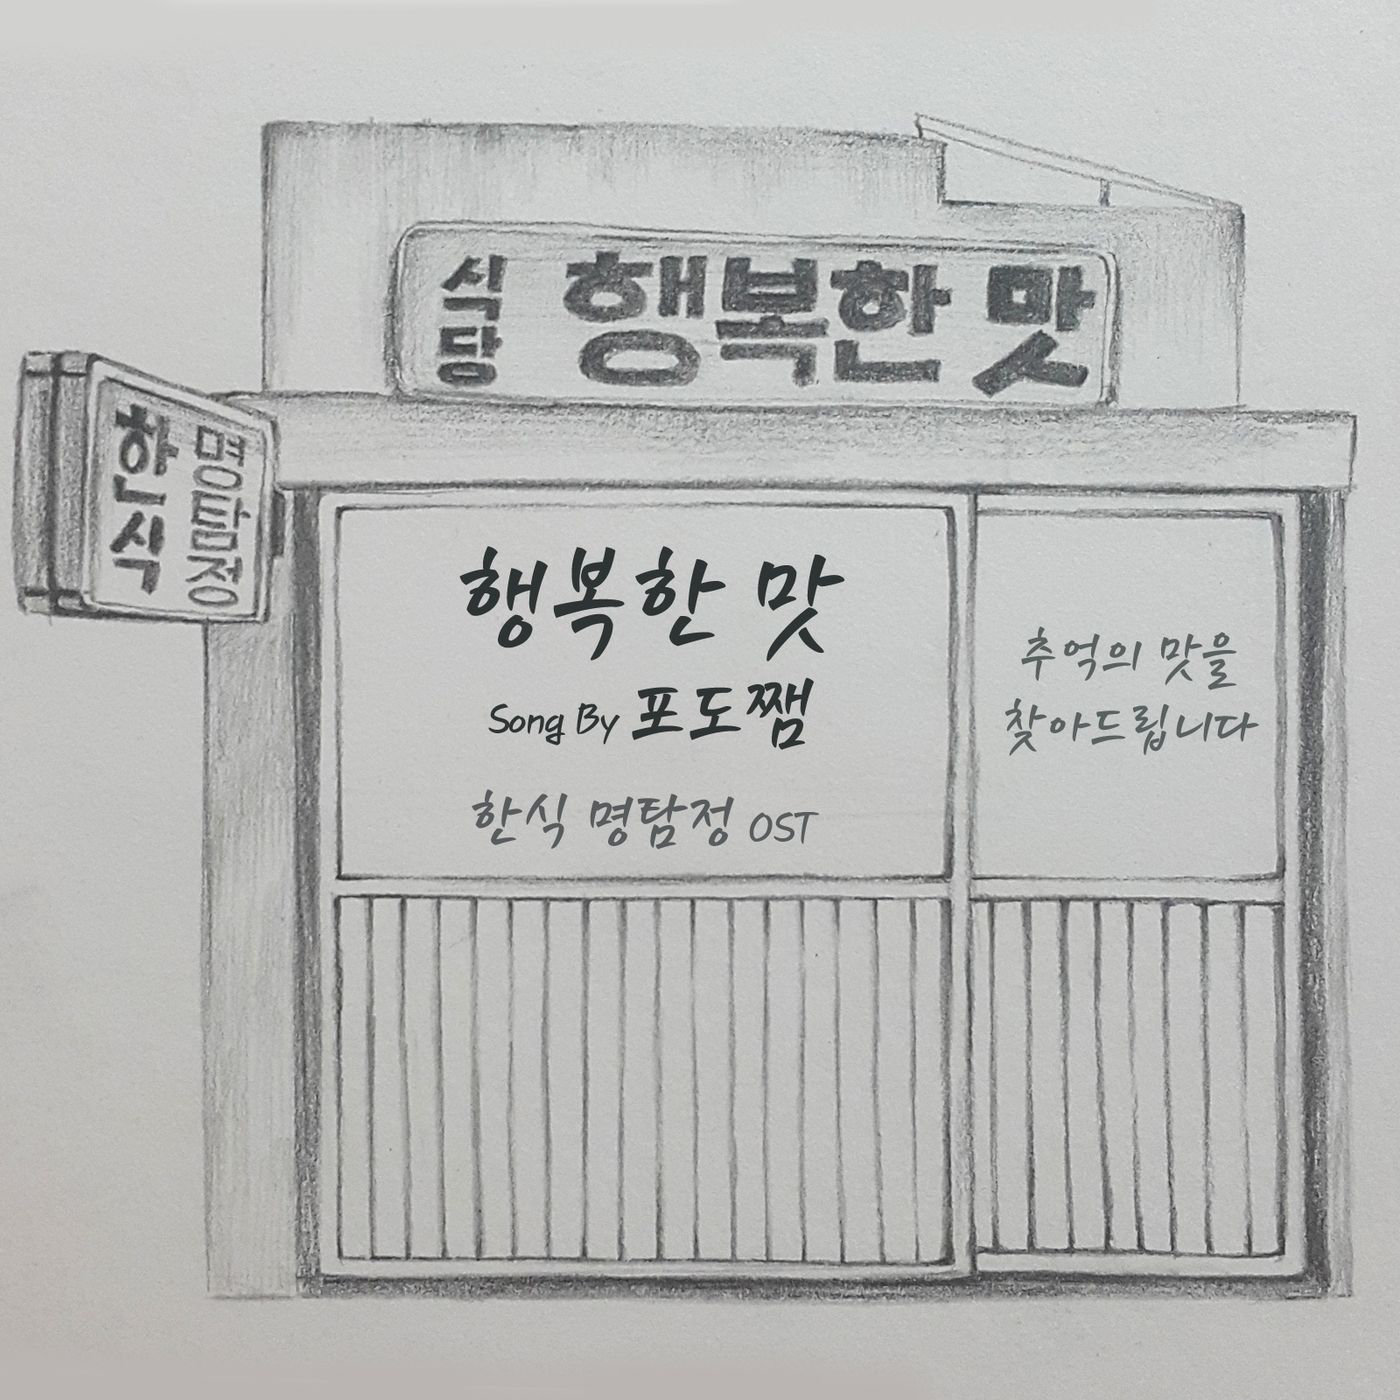 식당
행복한 맛
한식
명탐정
행복한 맛
Song By 포도쨈
한식 명탐정 OST
추억의 맛을
찾아드립니다